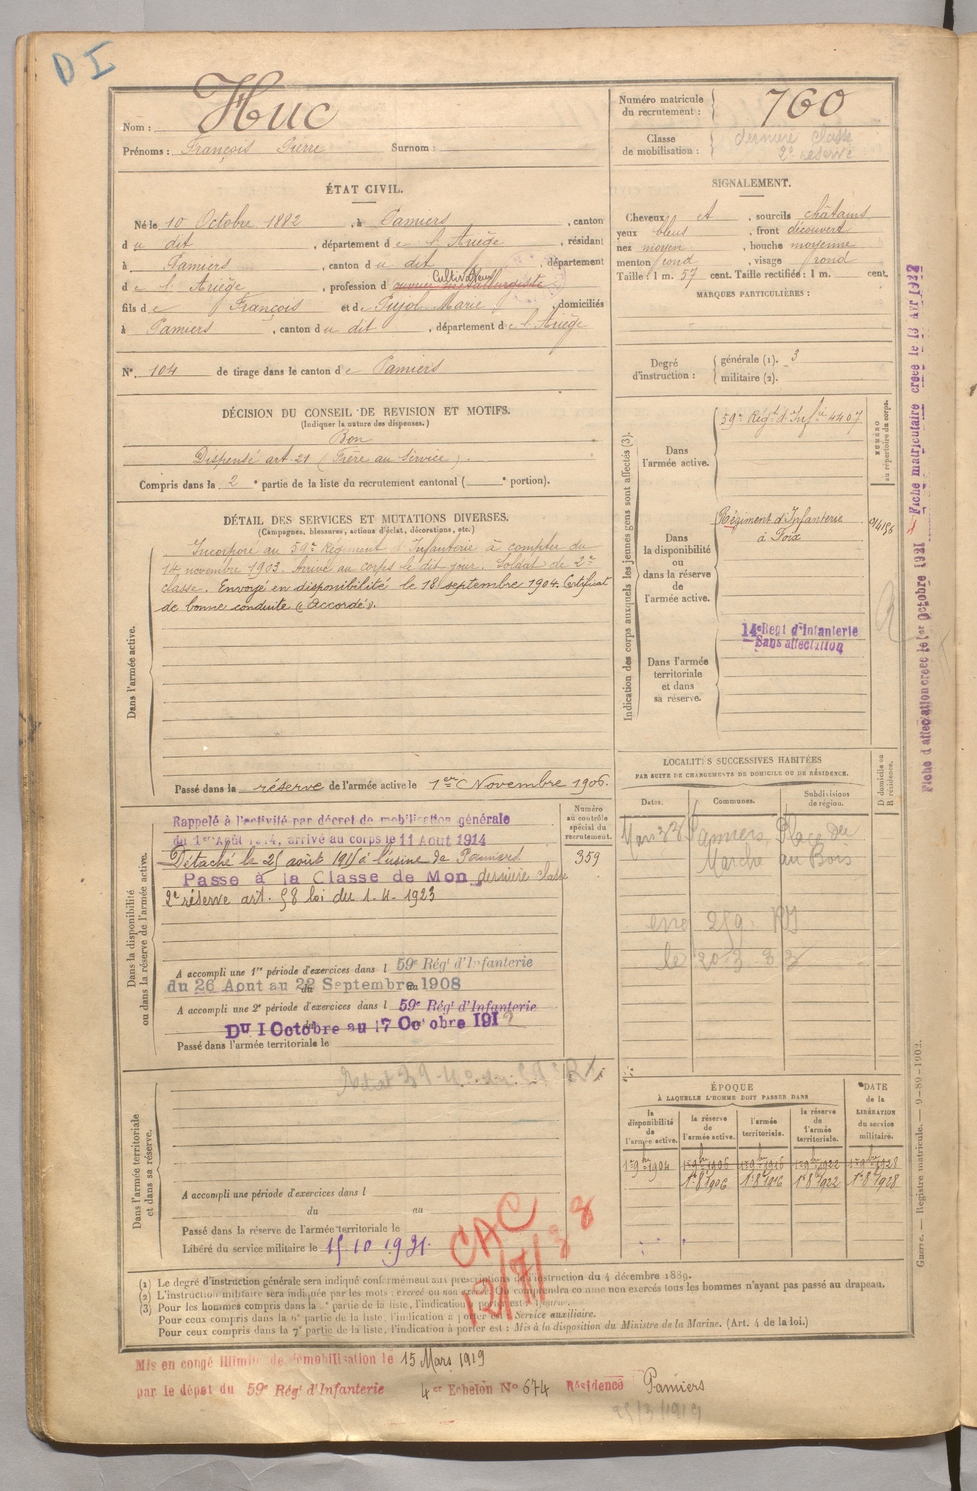 D I
Nom : Huc
Prénoms : François Pierre Surnom :
Numéro matricule du recrutement : 760
Classe de mobilisation : dernière classe 2e réserve
ÉTAT CIVIL.
Né le 10 Octobre 1882, à Pamiers, canton
du dit, département de l'Ariège, résidant
à Pamiers, canton du dit, département
Cultivateur
de l'Ariège, profession d ouvrier métallurgiste
fils de François et de Pujol Marie, domiciliés
à Pamiers, canton du dit, département de l'Ariège
N° 104 de tirage dans le canton de Pamiers
SIGNALEMENT.
Cheveux et, sourcils châtains
yeux bleus, front découvert
nez moyen, bouche moyenne
menton rond, visage rond
Taille : 1 m. 57 cent. Taille rectifiée : 1 m. cent.
MARQUES PARTICULIÈRES :
Degré d'instruction : générale (1). 3
militaire (2).
DÉCISION DU CONSEIL DE REVISION ET MOTIFS.
(Indiquer la nature des dispenses.)
Bon
Dispensé art. 21 (Frère au service).
Compris dans la 2e partie de la liste du recrutement cantonal ( e portion).
DÉTAIL DES SERVICES ET MUTATIONS DIVERSES.
(Campagnes, blessures, actions d'éclat, décorations, etc.)
Dans l'armée active.
Incorporé au 59e Régiment d'Infanterie à compter du
14 novembre 1903. Arrivé au corps le dit jour. Soldat de 2e
classe. Envoyé en disponibilité le 18 septembre 1904. Certificat
de bonne conduite « Accordé ».
Passé dans la réserve de l'armée active le 1er Novembre 1906.
Indication des corps auxquels les jeunes gens sont affectés (3).
NUMÉRO au répertoire du corps.
Dans l'armée active.
59e Régt d'Infie 4407
Dans la disponibilité ou dans la réserve de l'armée active.
Régiment d'Infanterie
à Foix
14e Regt d'Infanterie
Sans affectation
Dans l'armée territoriale et dans sa réserve.
Fiche matriculaire créée le 13 AVR 1922
Fiche d'affectation créée le 1er Octobre 1921
LOCALITÉS SUCCESSIVES HABITÉES
PAR SUITE DE CHANGEMENTS DE DOMICILE OU DE RÉSIDENCE.
Dates. Communes. Subdivisions de région. D domicile ou R résidence.
Pamiers, Place du
Marché au Bois
le 20-3-33
Dans la disponibilité ou dans la réserve de l'armée active.
Numéro au contrôle spécial du recrutement.
359
Rappelé à l'activité par décret de mobilisation générale
du 1er Août 1914, arrivé au corps le 11 Aout 1914
Détaché le 25 août 1915 à l'usine de Pamiers
Passe à la Classe de Mon dernière classe
2e réserve art. 58 loi du 1-4-1923
A accompli une 1re période d'exercices dans l 59e Rég' d'Infanterie
du 26 Aout au 22 Septembre 1908
A accompli une 2e période d'exercices dans l 59e Rég' d'Infanterie
Du 1 Octobre au 17 Octobre 191
Passé dans l'armée territoriale le
Dans l'armée territoriale et dans sa réserve.
A accompli une période d'exercices dans l
du au
Passé dans la réserve de l'armée territoriale le
Libéré du service militaire le 15.10.1931.
CAC
12/7/38
ÉPOQUE
À LAQUELLE L'HOMME DOIT PASSER DANS
DATE de la LIBÉRATION du service militaire.
la disponibilité de l'armée active. la réserve de l'armée active. l'armée territoriale. la réserve de l'armée territoriale.
1er 9bre 1904 1er 9bre 1906 1er 9bre 1916 1er 9bre 1922 1er 9bre 1928
1er 8bre 1906 1er 8bre 1916 1er 8bre 1922 1er 8bre 1928
Guerre. — Registre matricule. — 9-89-1902.
(1) Le degré d'instruction générale sera indiqué conformément aux prescriptions de l'instruction du 4 décembre 1889.
(2) L'instruction militaire sera indiquée par les mots : exercé ou non exercé. On comprendra comme non exercés tous les hommes n'ayant pas passé au drapeau.
(3) Pour les hommes compris dans la e partie de la liste, l'indication à porter est :
Pour ceux compris dans la 6e partie de la liste, l'indication à porter est : Service auxiliaire.
Pour ceux compris dans la 7e partie de la liste, l'indication à porter est : Mis à la disposition du Ministre de la Marine. (Art. 4 de la loi.)
Mis en congé illimité de démobilisation le 15 Mars 1919
par le dépôt du 59e Rég' d'Infanterie 4er Echelon N° 674 Résidence Pamiers